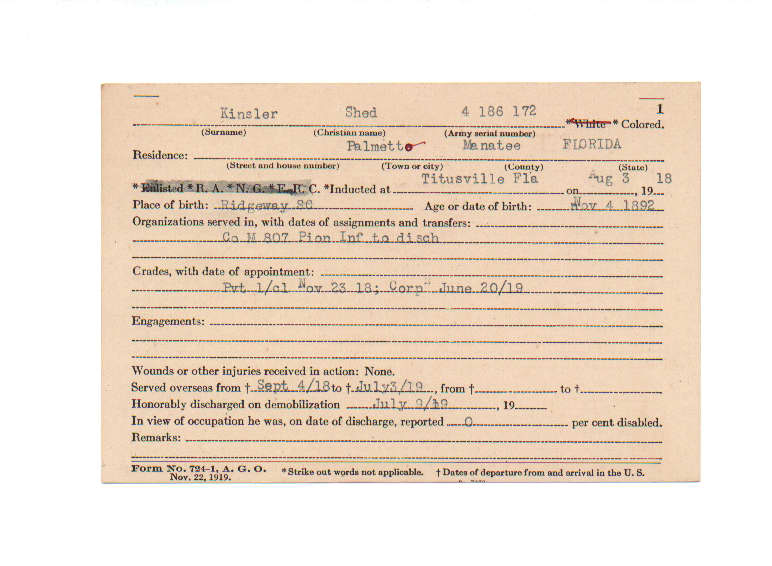 Kinsler Shed 4 186 172 1
*White * Colored.
(Surname) (Christian name) (Army serial number)
Residence: Palmetto Manatee FLORIDA
(Street and house number) (Town or city) (County) (State)
*Enlisted *R. A. *N. G. *E. R. C. *Inducted at Titusville Fla on Aug 3, 19 18
Place of birth: Ridgeway SC Age or date of birth: Nov 4 1892
Organizations served in, with dates of assignments and transfers:
Co M 807 Pion Inf to disch
Grades, with date of appointment:
Pvt 1/cl Nov 23 18; Corp June 20/19
Engagements:
Wounds or other injuries received in action: None.
Served overseas from † Sept 4/18 to † July 3/19, from † to †
Honorably discharged on demobilization July 9/19, 19
In view of occupation he was, on date of discharge, reported 0 per cent disabled.
Remarks:
Form No. 724-1, A. G. O. *Strike out words not applicable. † Dates of departure from and arrival in the U. S.
Nov. 22, 1919.